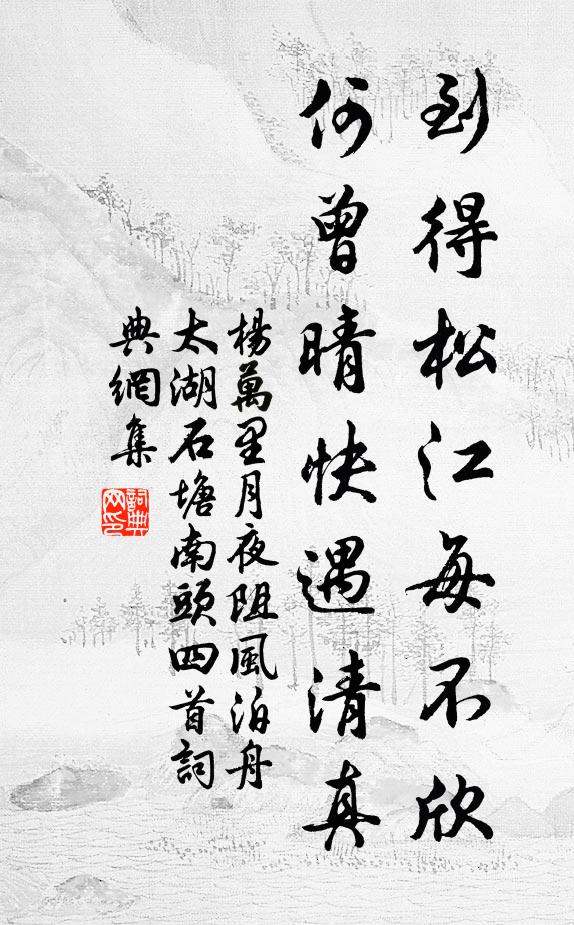 到得松江每不欣
何曾晴快遇清真
楊萬里月夜阻風泊舟
太湖石塘南頭四首詞
典網集
詞典网印